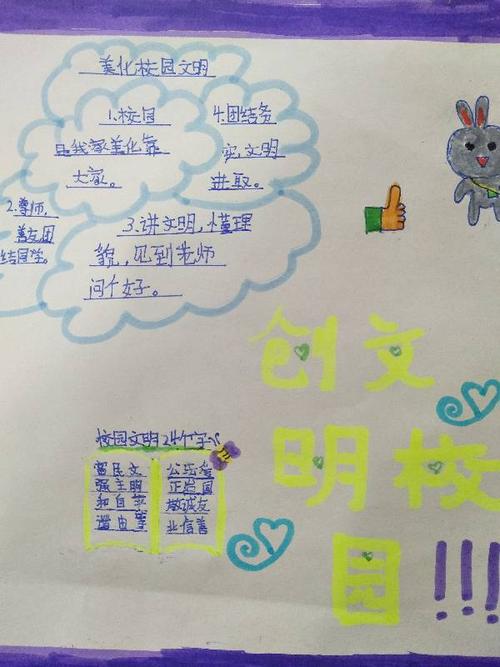 美化校园文明
1.校园
是我家美化靠
大家。
4.团结务
实,文明
进取。
2.尊师,
善友团
结同学。
3.讲文明,懂理
貌,见到老师
问个好。
创文
明校
园!!!
校园文明24个字
富民文
强主明
和自平
谐由等
公法爱
正治国
敬诚友
业信善